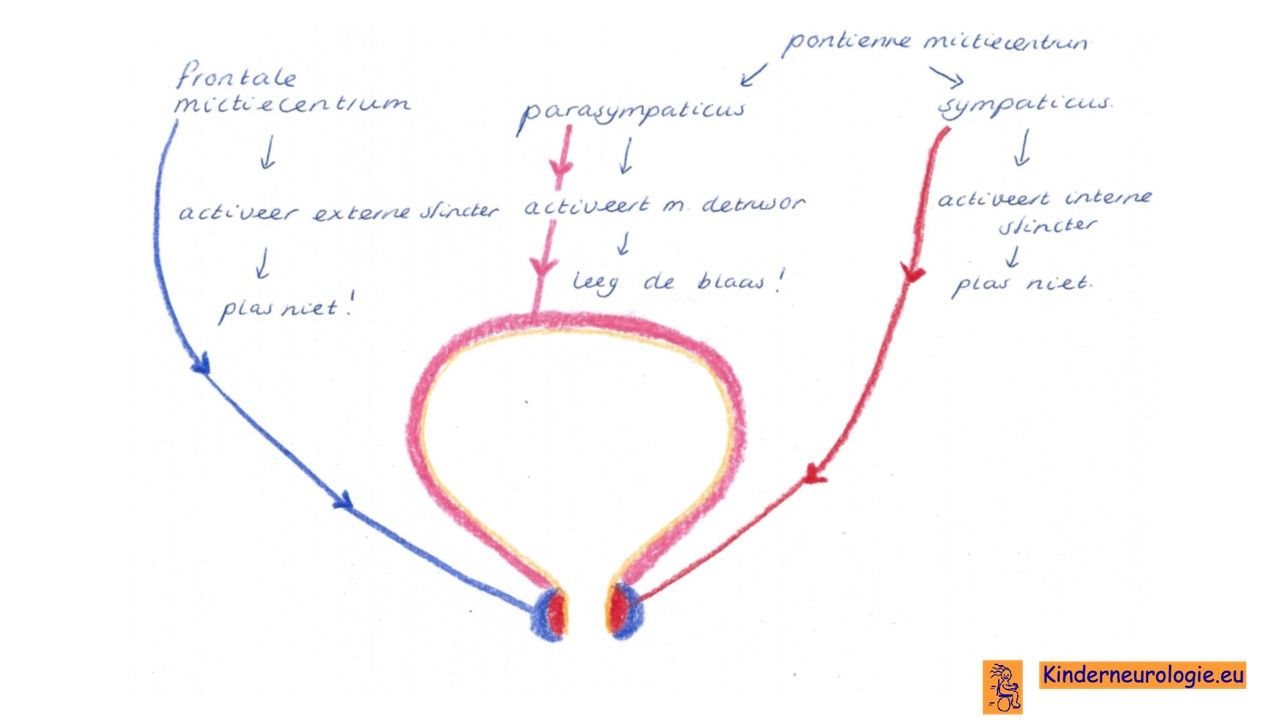 pontienne mictiecentrum
frontale
mictiecentrum
parasympaticus
sympaticus.
activeer externe sfincter
activeert m. detrusor
activeert interne
sfincter
plas niet!
leeg de blaas!
plas niet.
Kinderneurologie.eu